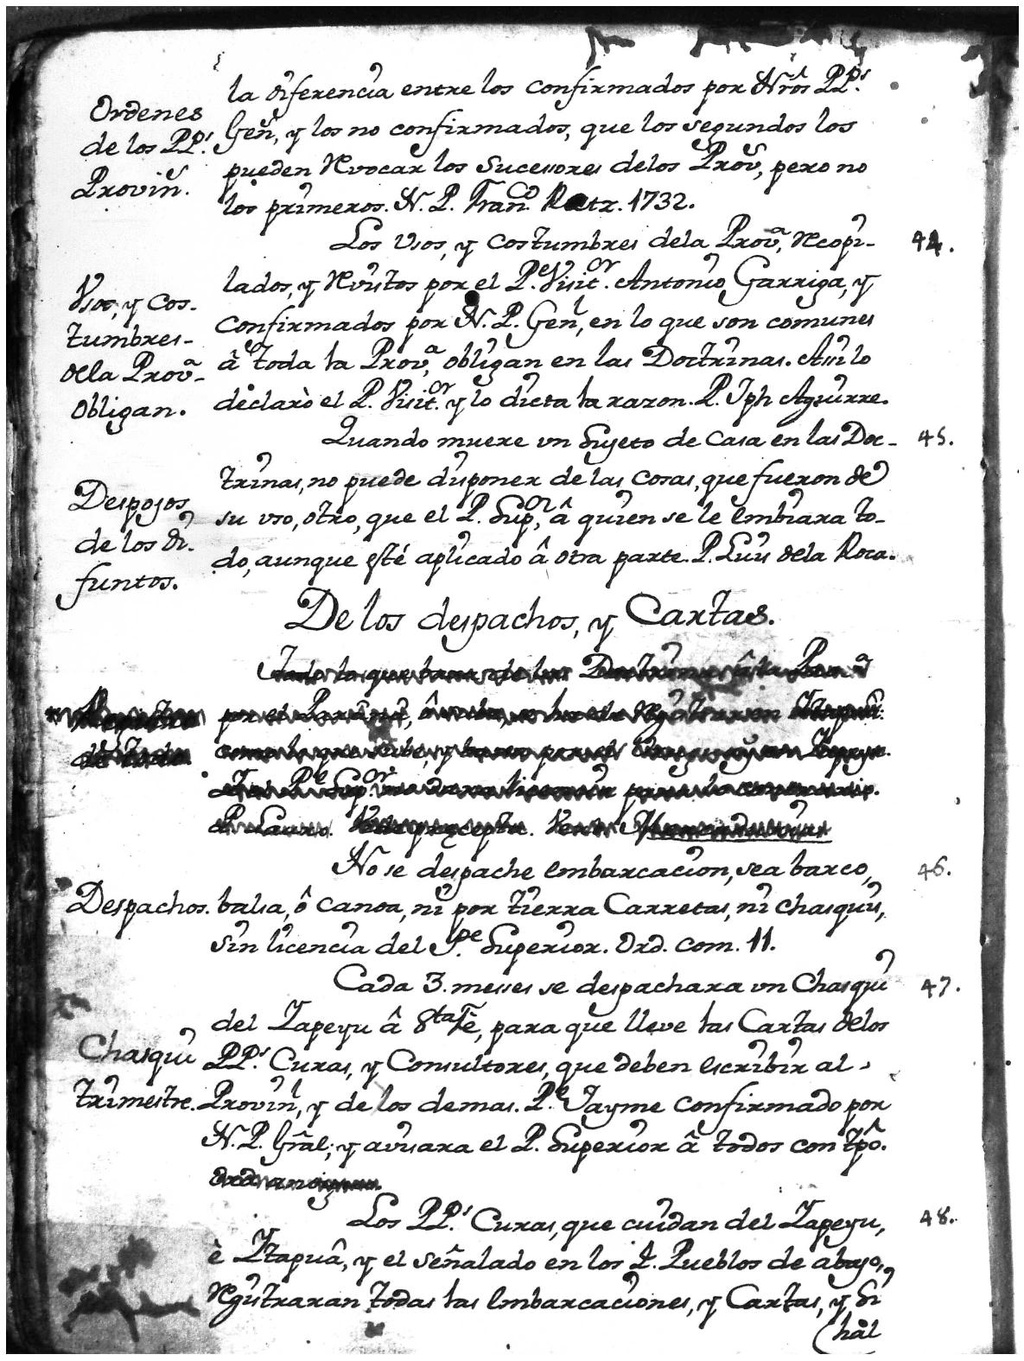 la diferencia entre los confirmados por Nros PP.s
Ordenes
de los PP.s
Provin.s
Gen.s, y los no confirmados, que los segundos los
pueden Revocar los Sucessores delos Prov.s, pero no
los primeros. N. P. Fran.co Retz. 1732.
Los Usos, y costumbres dela Prov.a, Recopi- 44.
Usos, y Cos-
tumbres
dela Prov.a
Obligan.
lados, y Revistos por el P.e Visit.or Antonio Garriga, y
confirmados por N. P. Gen.l, en lo que son comunes
â toda la Prov.a, obligan en las Doctrinas. Assi lo
declarò el P. Visit.or y lo dicta la razon. P. Jph Aguirre.
Quando muere un Sujeto de Casa en las Doc- 45.
Despojos
de los di-
funtos.
trinas, no puede disponer de las cosas, que fueron de
su uso, otro, que el P. Sup.or, â quien se le embiara to-
do, aunque esté aplicado â otra parte. P. Luis dela Roca.
De los despachos, y Cartas.
No se despache embarcacion, sea barco, 46.
Despachos. balsa, ô canoa, ni por tierra Carretas, ni chasquis,
sin licencia del P.e Superior. Ord. com. 11.
Cada 3. messes se despachara un Chasqui 47.
Chasqui
trimestre.
del Yapeyu â S.ta Fè, para que lleve las Cartas delos
PP.s Curas, y Consultores, que deben escribir al
Provin.l, y de los demas. P.e Jayme confirmado por
N. P. Gñal; y avisara el P. Superior â todos con tpô.
Los PP.s Curas, que cuidan del Yapeyu, 48.
è Ytapuâ, y el señalado en los 4. Pueblos de abajo,
Registraran todas las embarcaciones, y Cartas, y Si
hal